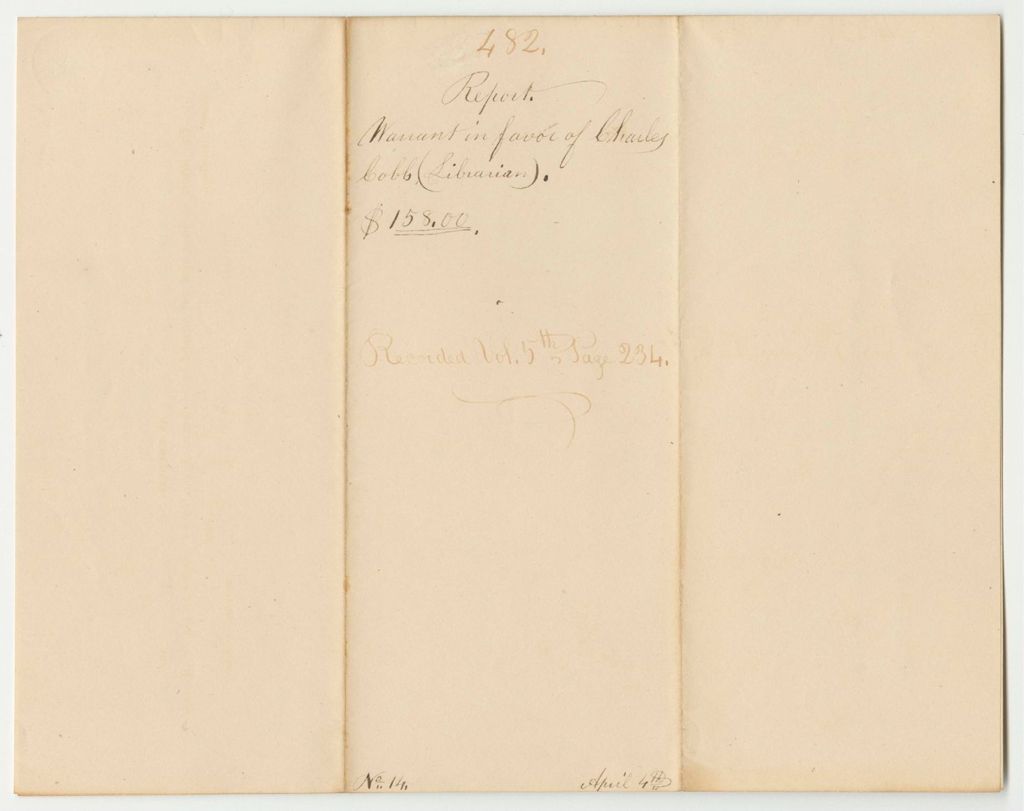 482.
Report.
Warrant in favor of Charles
Cobb (Librarian).
$158.00.
Recorded Vol. 5th Page 234.
No. 14. April 4th